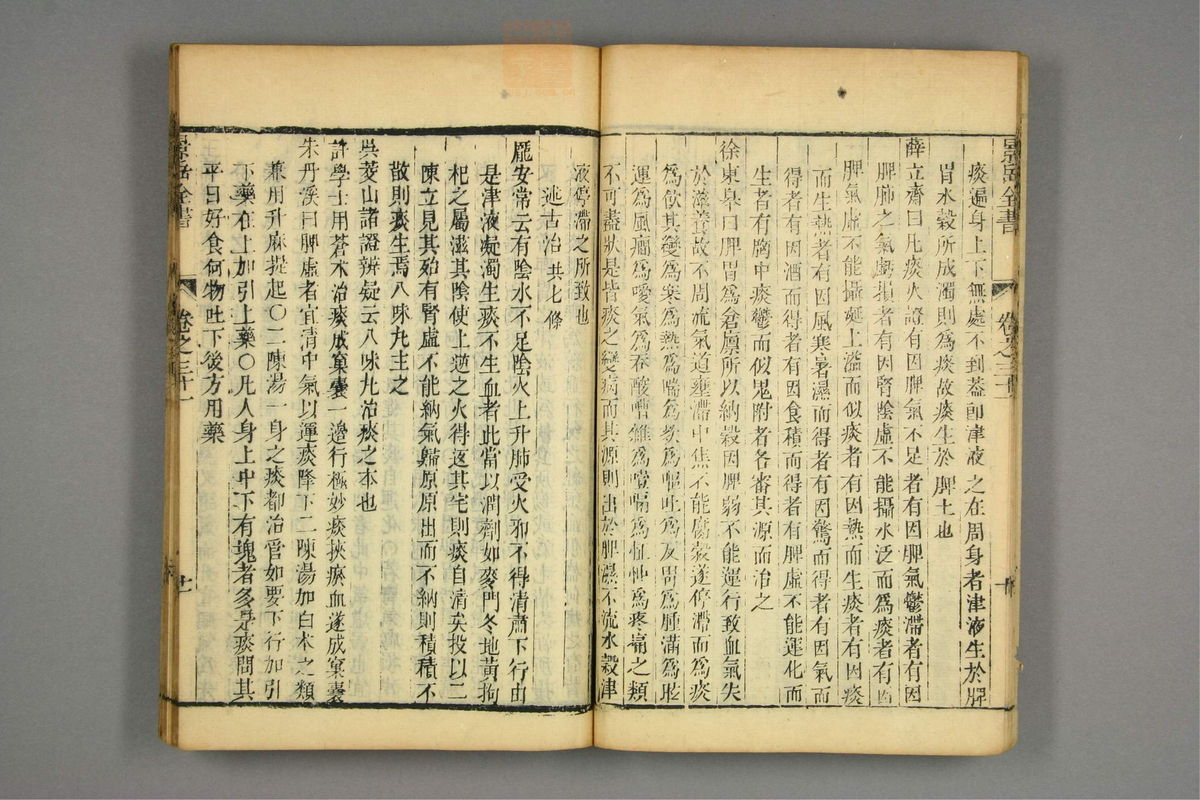 痰遍身上下無處不到蓋卽津液之在周身者津液生於脾
胃水穀所成濁則爲痰故痰生於脾土也
薛立齋曰凡痰火證有因脾氣不足者有因脾氣鬱滯者有因
脾肺之氣虧損者有因腎陰虛不能攝水泛而爲痰者有因
脾氣虛不能攝涎上溢而似痰者有因熱而生痰者有因痰
而生熱者有因風寒暑濕而得者有因驚而得者有因氣而
得者有因酒而得者有因食積而得者有脾虛不能運化而
生者有胸中痰鬱而似鬼附者各審其源而治之
徐東皐曰脾胃爲倉廩所以納穀因脾弱不能運行致血氣失
於滋養故不周流氣道壅滯中焦不能腐穀遂停滯而爲痰
爲飲其變爲寒爲熱爲喘爲欬爲嘔吐爲反胃爲腫滿爲眩
運爲風癇爲噯氣爲吞酸嘈雜爲噎膈爲怔忡爲疼痛之類
不可盡狀是皆痰之變病而其源則出於脾濕不流水穀津
液停滯之所致也
述古治共七條
龐安常云有陰水不足陰火上升肺受火邪不得清肅下行由
是津液凝濁生痰不生血者此當以潤劑如麥門冬地黃拘
杞之屬滋其陰使上逆之火得返其宅則痰自清矣投以二
陳立見其殆有腎虛不能納氣歸原原出而不納則積積不
散則痰生焉八味丸主之
吳茭山諸證辨疑云八味丸治痰之本也
許學士用蒼术治痰成窠囊一邊行極妙痰挾瘀血遂成窠囊
朱丹溪曰脾虛者宜清中氣以運痰降下二陳湯加白术之類
兼用升麻提起○二陳湯一身之痰都治管如要下行加引
下藥在上加引上藥○凡人身上中下有塊者多是痰問其
平日好食何物吐下後方用藥
景岳全書
卷之三十一
十
景岳全書
卷之三十一
十一